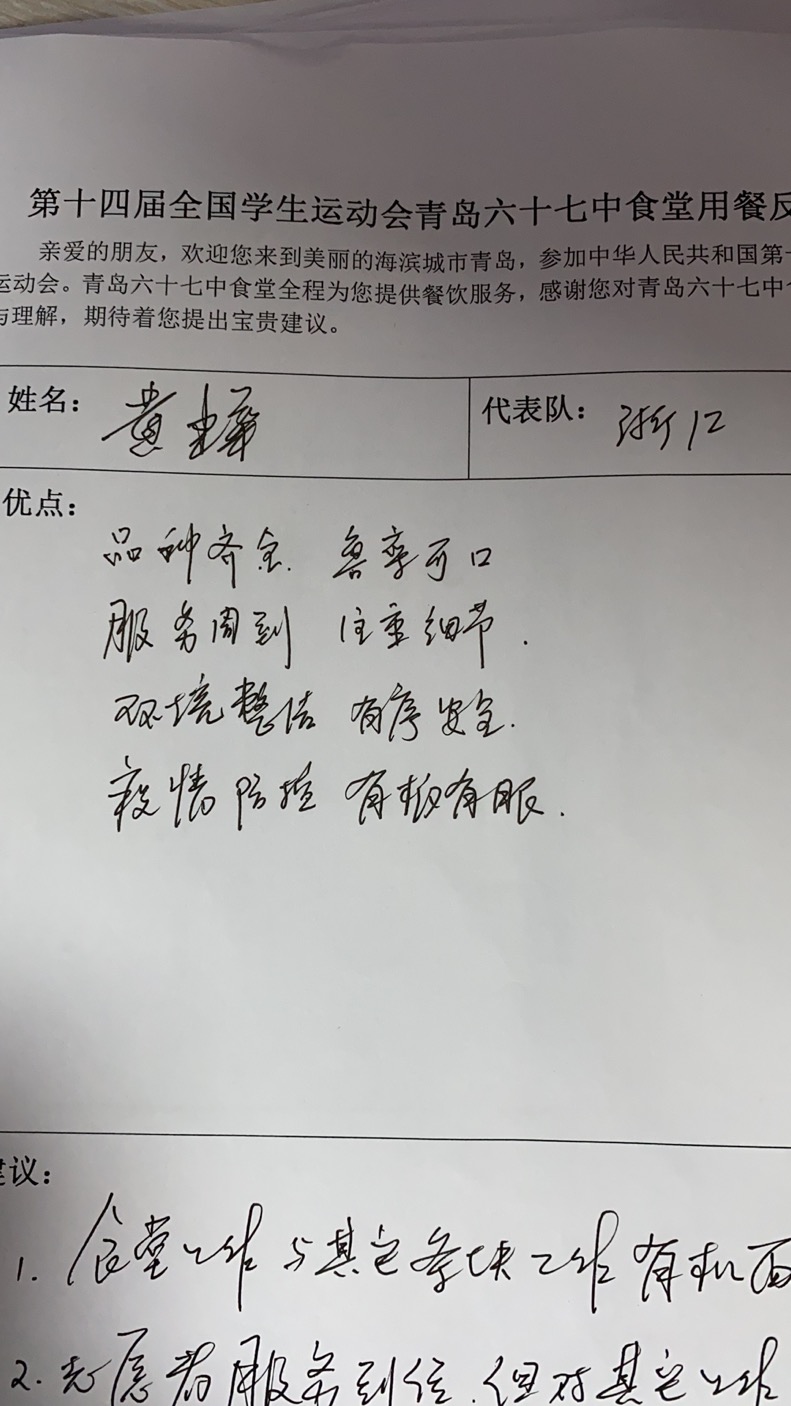 第十四届全国学生运动会青岛六十七中食堂用餐反
亲爱的朋友，欢迎您来到美丽的海滨城市青岛，参加中华人民共和国第十
运动会。青岛六十七中食堂全程为您提供餐饮服务，感谢您对青岛六十七中食
与理解，期待着您提出宝贵建议。
姓名： 黄
代表队： 浙江
优点：
品种齐全. 可口
服务周到 注重细节.
环境整洁 有序安全.
疫情防控 有板有眼.
建议：
1. 食堂工作与其它条块工作有机
2. 志愿者服务到位.但对其它工作